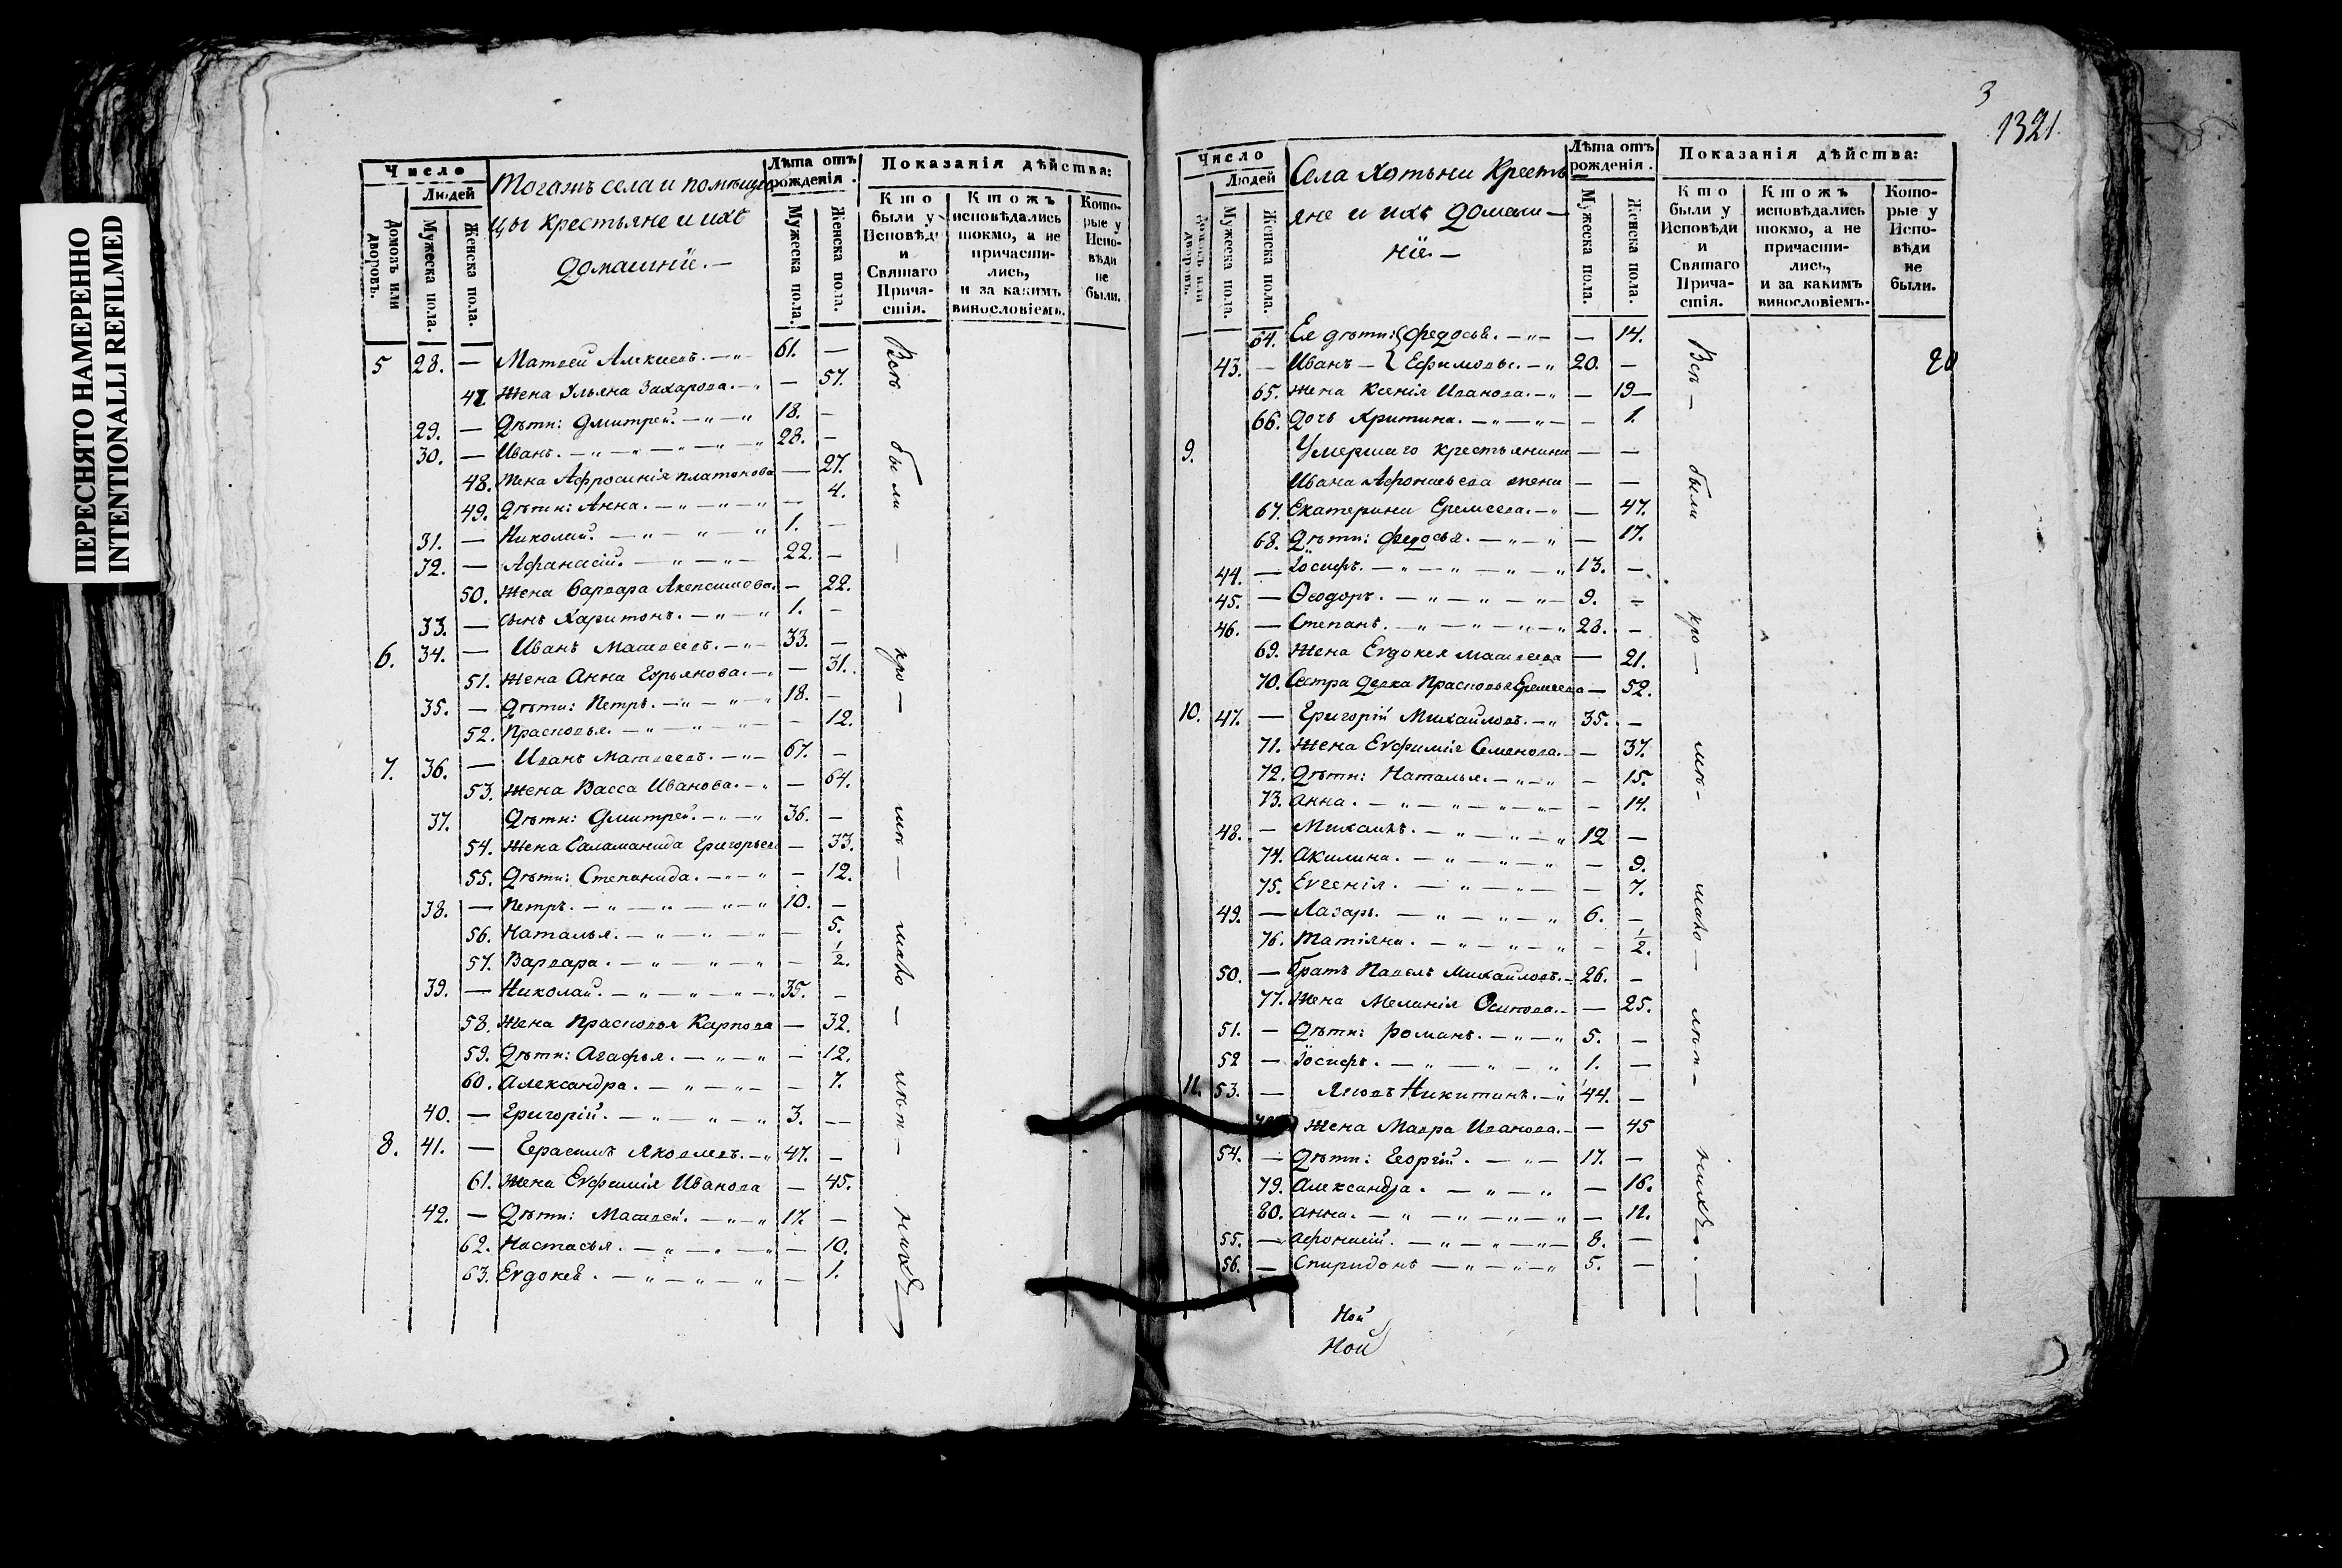 ПЕРЕСНЯТО НАМЕРЕННО
INTENTIONALLI REFILMED
Число
Людей
Домовъ или дворовъ.
Мужеска пола.
Женска пола.
Тогожъ села и помѣщи
цы крестьяне и ихъ
домашнiи. —
Лѣта отъ рожденiя.
Мужеска пола.
Женска пола.
Показанiя дѣйства:
Кто были у Исповѣди и Святаго Причастiя.
Ктожъ исповѣдались токмо, а не причастились, и за какимъ винословiемъ.
Которые у Исповѣди не были.
5 28. — Матвей Алексеевъ. 61. —
47. Жена Ульяна Захарова. — 57.
29. — Дѣти: Дмитрей. 18. —
30. — Иванъ. 28. —
48. Жена Афросинiя Платонова — 27.
49. Дѣти: Анна. — 4.
31. — Николай. 1. —
32. — Афанасiй. 22. —
50. Жена Варвара — 22.
33. — сынъ Харитонъ. 1. —
6. 34. — Иванъ Матвеевъ. 33. —
51. Жена Анна — 31.
35. — Дѣти: Петръ. 18. —
52. Прасковья. — 12.
7. 36. — Иванъ Матвеевъ. 67. —
53. Жена Васса Иванова. — 64.
37. Дѣти: Дмитрей. 36. —
54. Жена Саламанида Григорьева — 33.
55. Дѣти: Степанида. — 12.
38. — Петръ. 10. —
56. Наталья. — 5.
57. Варвара. — 1/2.
39. — Николай. 35. —
58. Жена Прасковья Карпова — 32.
59. Дѣти: Агафья. — 12.
60. Александра. — 7.
40. — Григорiй. 3. —
8. 41. — Герасимъ Яковлевъ. 47. —
61. Жена Евфимiя Иванова — 45.
42. — Дѣти: Матвей. 17. —
62. Настасья. — 10.
63. Евдокея. — 1.
Всѣ были кро— мѣ— мало— лѣт— нихъ
3
1321.
Число
Людей
Мужеска пола.
Женска пола.
Села Хотыни Кресть
яне и ихъ домаш—
нiи. —
Лѣта отъ рожденiя.
Мужеска пола.
Женска пола.
Показанiя дѣйства:
Кто были у Исповѣди и Святаго Причастiя.
Ктожъ исповѣдались токмо, а не причастились, и за какимъ винословiемъ.
Которые у Исповѣди не были.
64. Ея дѣти: Федосья. — 14.
43. — Иванъ — Ефимовы. 20. —
65. Жена Ксенiя Иванова. — 19 —
66. Дочь Христина. — 1.
9. Умершаго крестьянина — —
Ивана Афонасьева жена — —
67. Екатерина Еремеева. — 47.
68. Дѣти: Федосья. — 17.
44. — Iосифъ. 13. —
45. — Ѳеодоръ. 9. —
46. — Степанъ. 23. —
69. Жена Евдокея Матвеева — 21.
70. Сестра девка Прасковья Еремеева — 52.
10. 47. — Григорiй Михайловъ. 35. —
71. Жена Евфимiя Семенова. — 37.
72. Дѣти: Наталья. — 15.
73. Анна. — 14.
48. — Михаилъ. 12 —
74. Акилина. — 9.
75. Евгенiя. — 7.
49. — Лазарь. 6. —
76. Татiяна. — 1/2.
50. — братъ Павелъ Михайловъ. 26. —
77. Жена Меланiя Осипова. — 25.
51. — Дѣти: Романъ. 5. —
52 — Iосифъ. 1. —
11. 53. — Никитинъ. 44. —
Жена Мавра Иванова. — 45
54. — Дѣти: Георгiй. 17. —
79. Александра. — 16.
80. Анна. — 12.
55. — Афонасiй. 8. —
56. — Спиридонъ 5. —
Всѣ — были кро— мѣ— мало— лѣт— нихъ. —
20
Ной
Ной